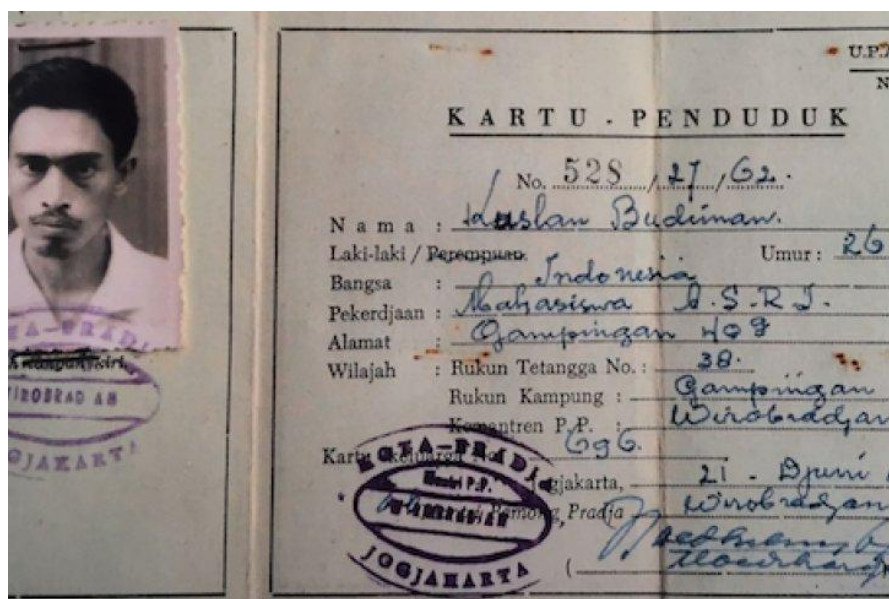 U.P.
KARTU - PENDUDUK
No. 528 / 27 / 62.
Nama : Kuslan Budiman.
Laki-laki / Perempuan. Umur : 26
Bangsa : Indonesia
Pekerdjaan : Mahasiswa A.S.R.I.
Alamat : Gampingan 409
Wilajah : Rukun Tetangga No. : 38.
Rukun Kampung : Gampingan
Kemantren P.P. : Wirobradjan
Kartu 696.
Jogjakarta, 21 - Djuni
Pamong Pradja Wirobradjan
KOTA-PRADJA
Mantri P.P.
WIROBRADJAN
JOGJAKARTA